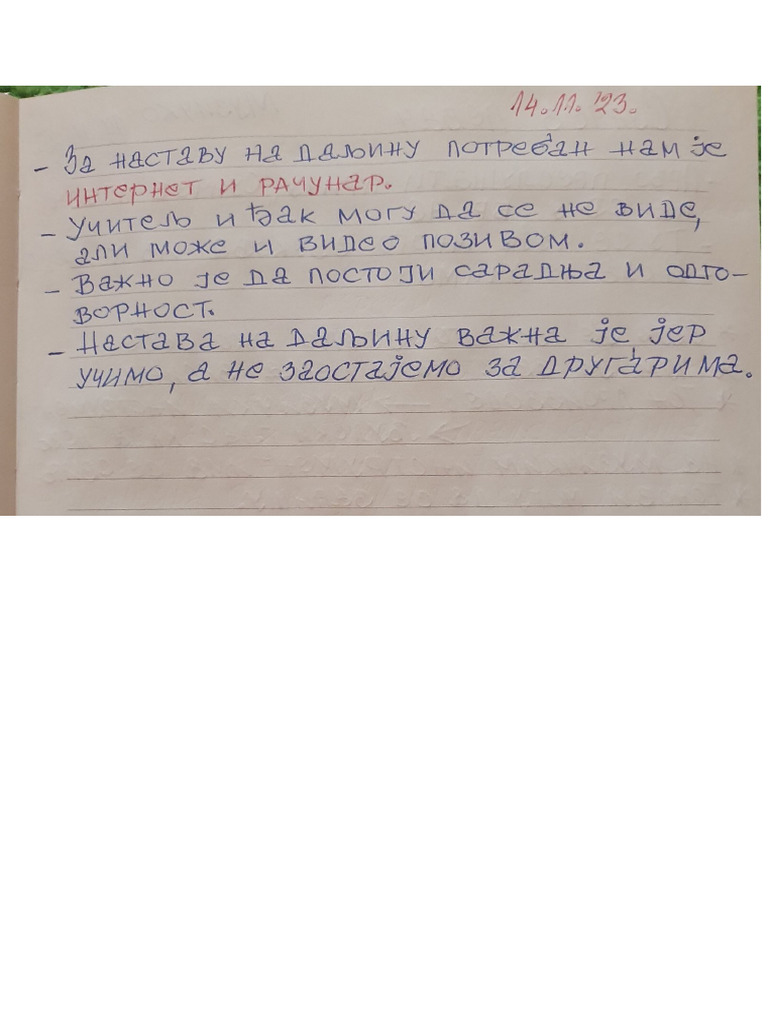 14.11.'23.
- За наставу на даљину потребан нам је
интернет и рачунар.
- Учитељ и ђак могу да се не виде,
али може и видео позивом.
- Важно је да постоји сарадња и одго-
ворност.
- Настава на даљину важна је, јер
учимо, а не заостајемо за другарима.